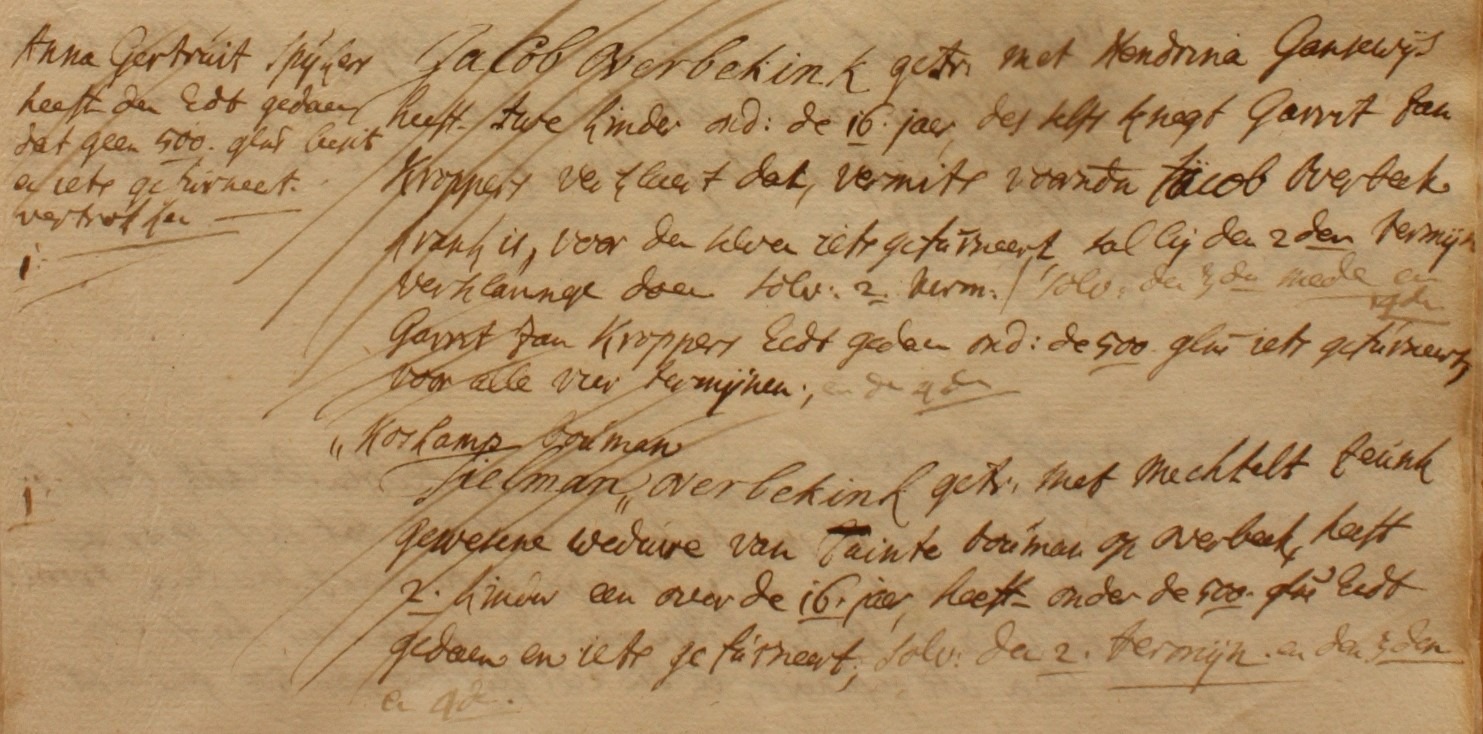 Anna Gertruit Spÿker
heeft den Edt gedaen
dat geen 500. glns besit
en iets gefurneert.
vertrokken
1
Jacob Overbekink getr. met Hendrina Gansewijs
heeft twe kinder ond: de 16. jaer, des selfs knegt Garrit Jan
Kroppers verklaert dat, vermits voornde Jacob Overbeek
krank is, voor den selven iets gefurneert, sal bij den 2den termijn
verklaringe doen solv: 2. term: / solv: den 3den mede en
4de
Garrit Jan Kroppers Eedt gedaen ond: de 500 glns iets gefurneert
voor alle vier termijnen; en de 4de
Koskamp bouman
Tielman, overbekink getr. met Mechtelt Teunk
1
gewesene weduwe van Tainte bouman op overbeek, heeft
2. kinder een over de 16. jaer, heeft onder de 500. glns Eedt
gedaen en iets gefurneert, solv: den 2. termijn. en den 3den
en 4de.